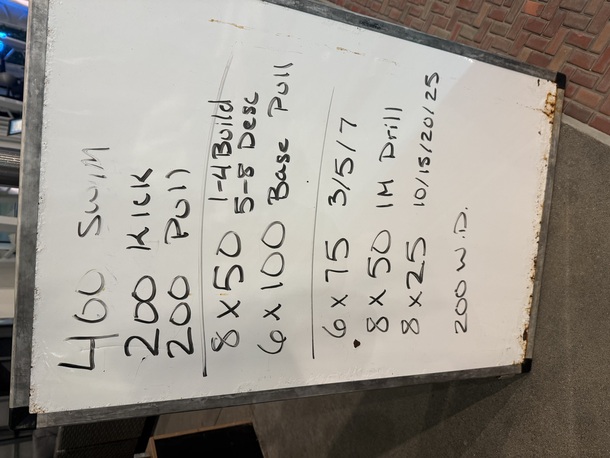 400 Swim
200 Kick
200 Pull
8 x 50 1-4 Build
5-8 Desc
6 x 100 Base Pull
6 x 75 3/5/7
8 x 50 IM Drill
8 x 25 10/15/20/25
200 W.D.